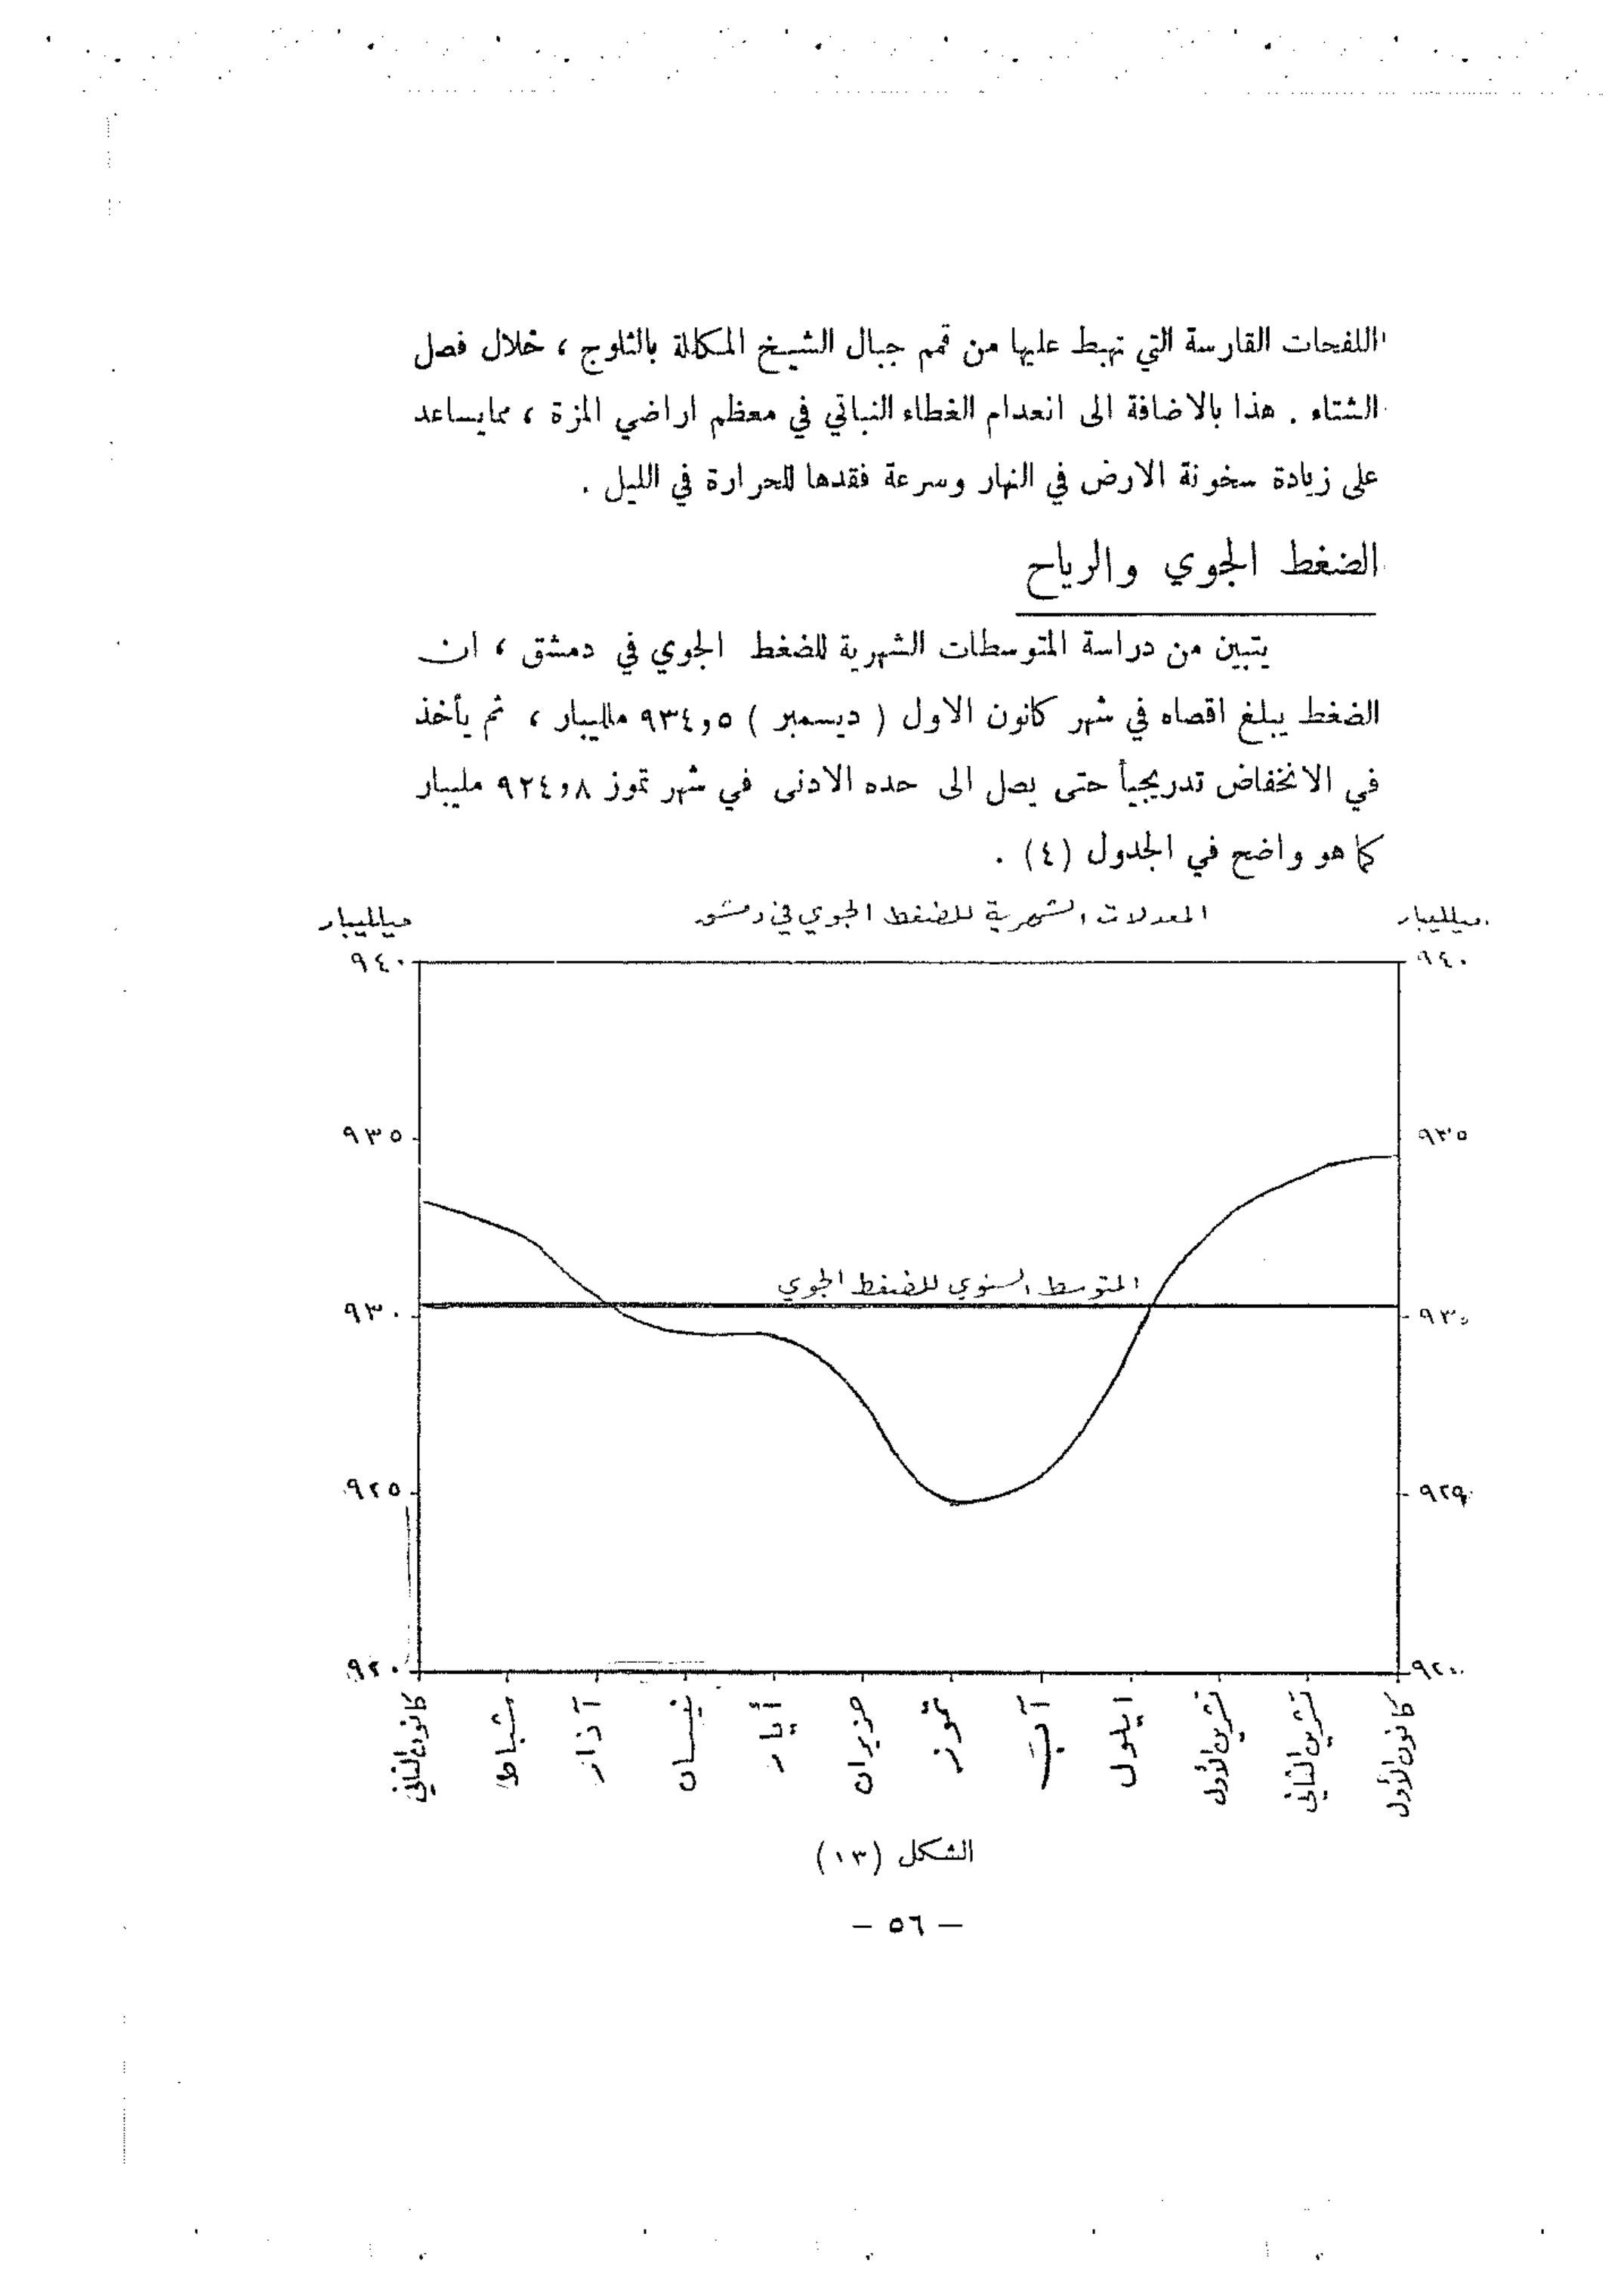 اللفحات القارسة التي تهبط عليها من قمم جبال الشيخ المكللة بالثلوج ، خلال فصل
الشتاء . هذا بالاضافة الى انعدام الغطاء النباتي في معظم اراضي المزة ، مما يساعد
على زيادة سخونة الارض في النهار وسرعة فقدها للحرارة في الليل .
الضغط الجوي والرياح
يتبين من دراسة المتوسطات الشهرية للضغط الجوي في دمشق ، ان
الضغط يبلغ اقصاه في شهر كانون الاول ( ديسمبر ) ٩٣٤,٥ ملليبار ، ثم يأخذ
في الانخفاض تدريجياً حتى يصل الى حده الادنى في شهر تموز ٩٢٤,٨ مليبار
كما هو واضح في الجدول (٤) .
المعدلات الشهرية للضغط الجوي في دمشق
ميلليبار
ميلليبار
٩٤٠
٩٤٠
٩٣٥
٩٣٥
المتوسط السنوي للضغط الجوي
٩٣٠
٩٣٠
٩٢٥
٩٢٥
٩٢٠
٩٢٠
كانون الثاني
شباط
آذار
نيسان
أيار
حزيران
تموز
آب
ايلول
تشرين الأول
تشرين الثاني
كانون الأول
الشكل (١٣)
— ٥٦ —